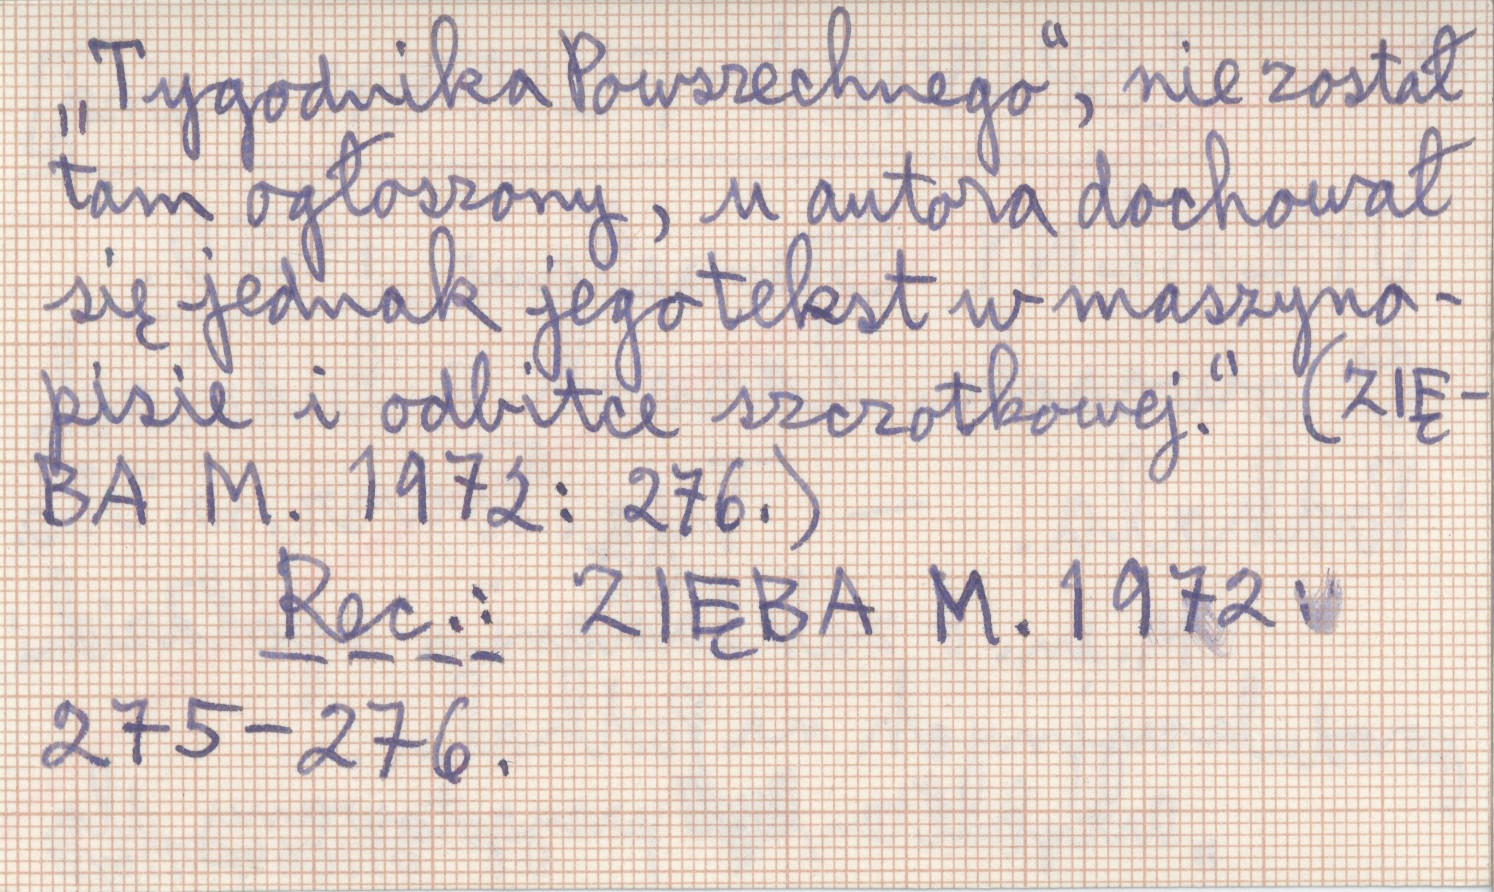 „Tygodnika Powszechnego“, nie został
tam ogłoszony, u autora dochował
się jednak jego tekst w maszyno-
pisie i odbitce szczotkowej.“ (ZIĘ-
BA M. 1972: 276.)
Rec.: ZIĘBA M. 1972:
275-276.